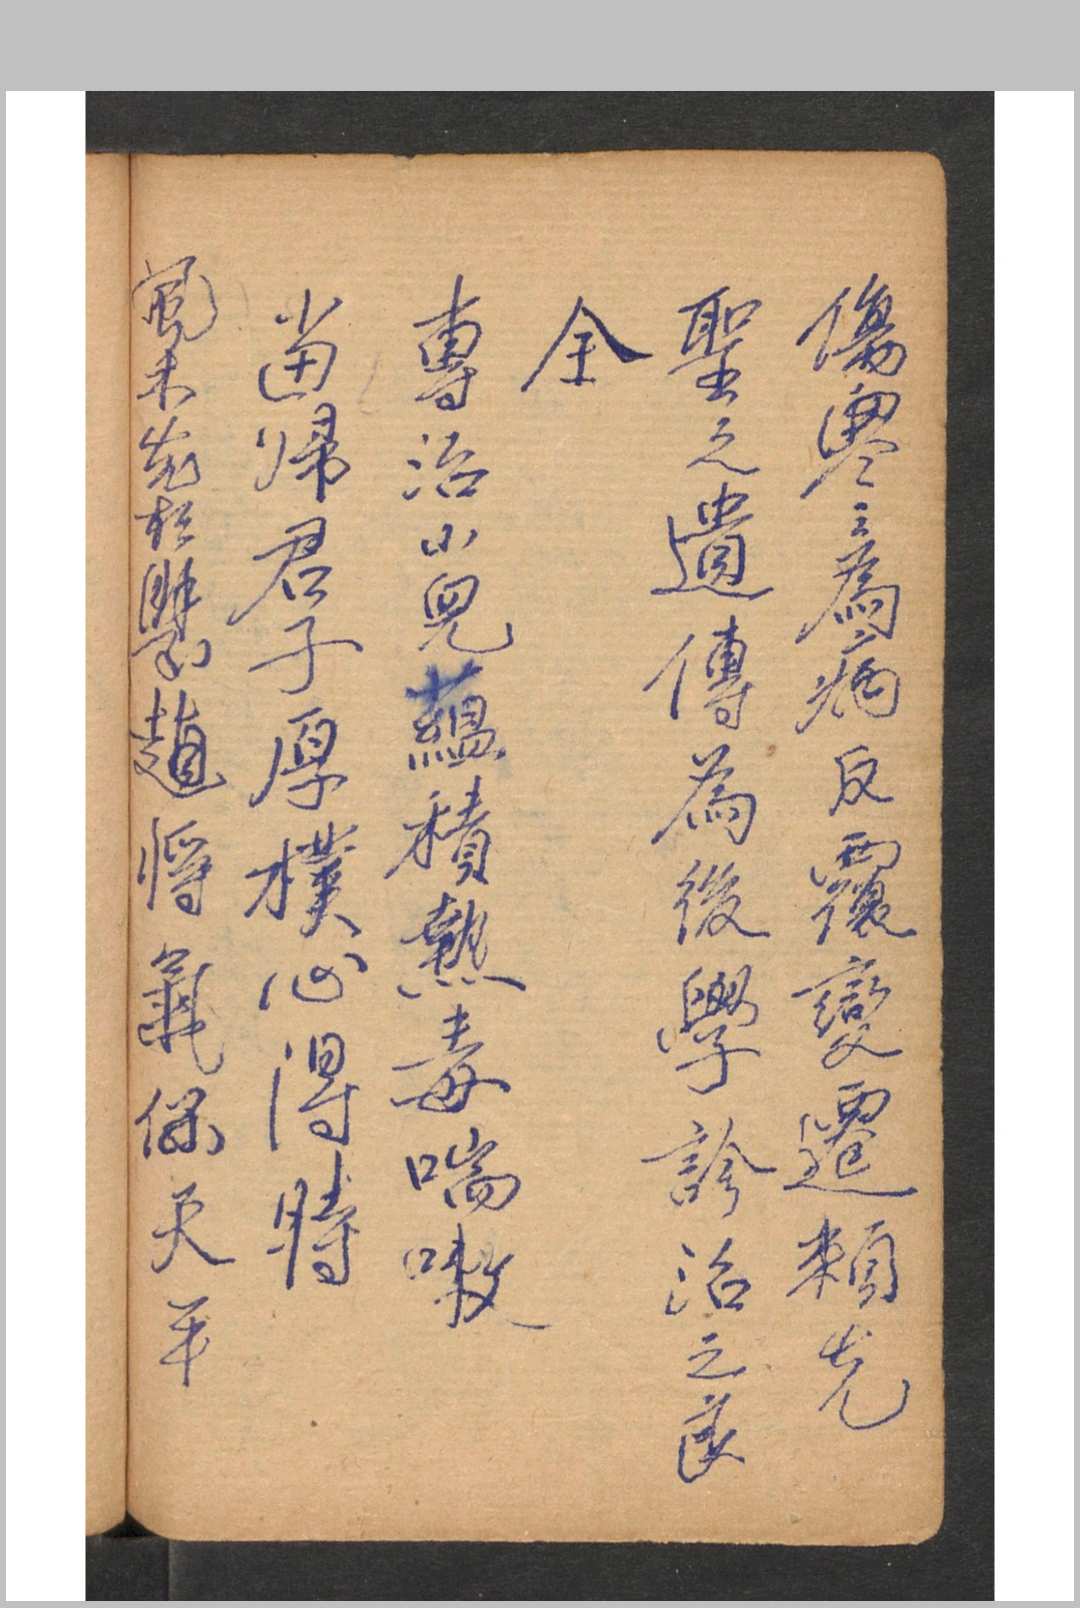 傷寒之為病反覆變遷賴先
聖之遺傳為後學診治之良
全
專治小兒蘊積熱毒喘嗽
當歸君子厚樸心得時
風未 趙將義保天平